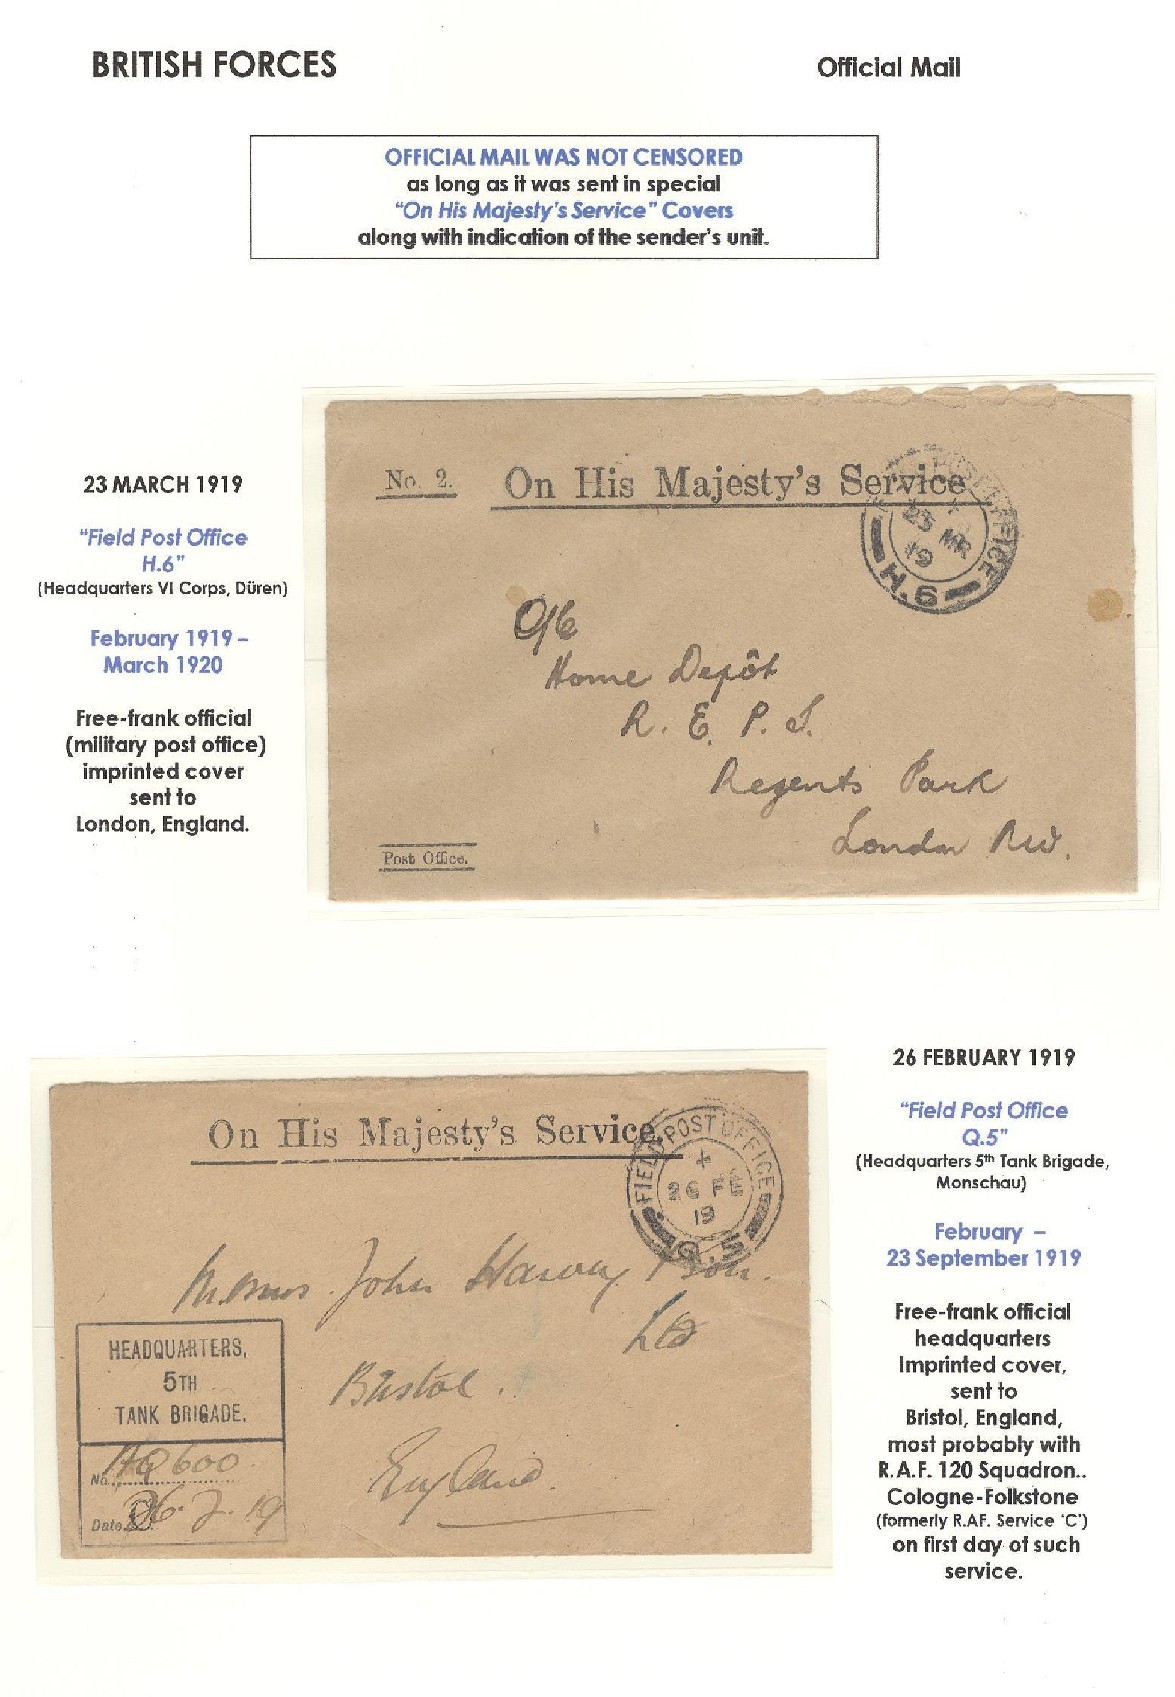 BRITISH FORCES
Official Mail
OFFICIAL MAIL WAS NOT CENSORED
as long as it was sent in special
"On His Majesty's Service" Covers
along with indication of the sender's unit.
23 MARCH 1919
"Field Post Office
H.6"
(Headquarters VI Corps, Düren)
February 1919 –
March 1920
Free-frank official
(military post office)
imprinted cover
sent to
London, England.
No. 2.
On His Majesty's Service
POST OFFICE
+
23 MR
19
H.6
O/C
Home Depôt
R. E. P. S.
Regents Park
London NW.
Post Office.
On His Majesty's Service.
FIELD POST OFFICE
+
26 FE
19
Q.5
Messrs John Harvey & Son.
Ltd
Bristol.
England.
HEADQUARTERS,
5TH
TANK BRIGADE.
No. HQ600
Date 26.2.19
26 FEBRUARY 1919
"Field Post Office
Q.5"
(Headquarters 5th Tank Brigade,
Monschau)
February –
23 September 1919
Free-frank official
headquarters
Imprinted cover,
sent to
Bristol, England,
most probably with
R.A.F. 120 Squadron..
Cologne-Folkstone
(formerly R.AF. Service 'C')
on first day of such
service.